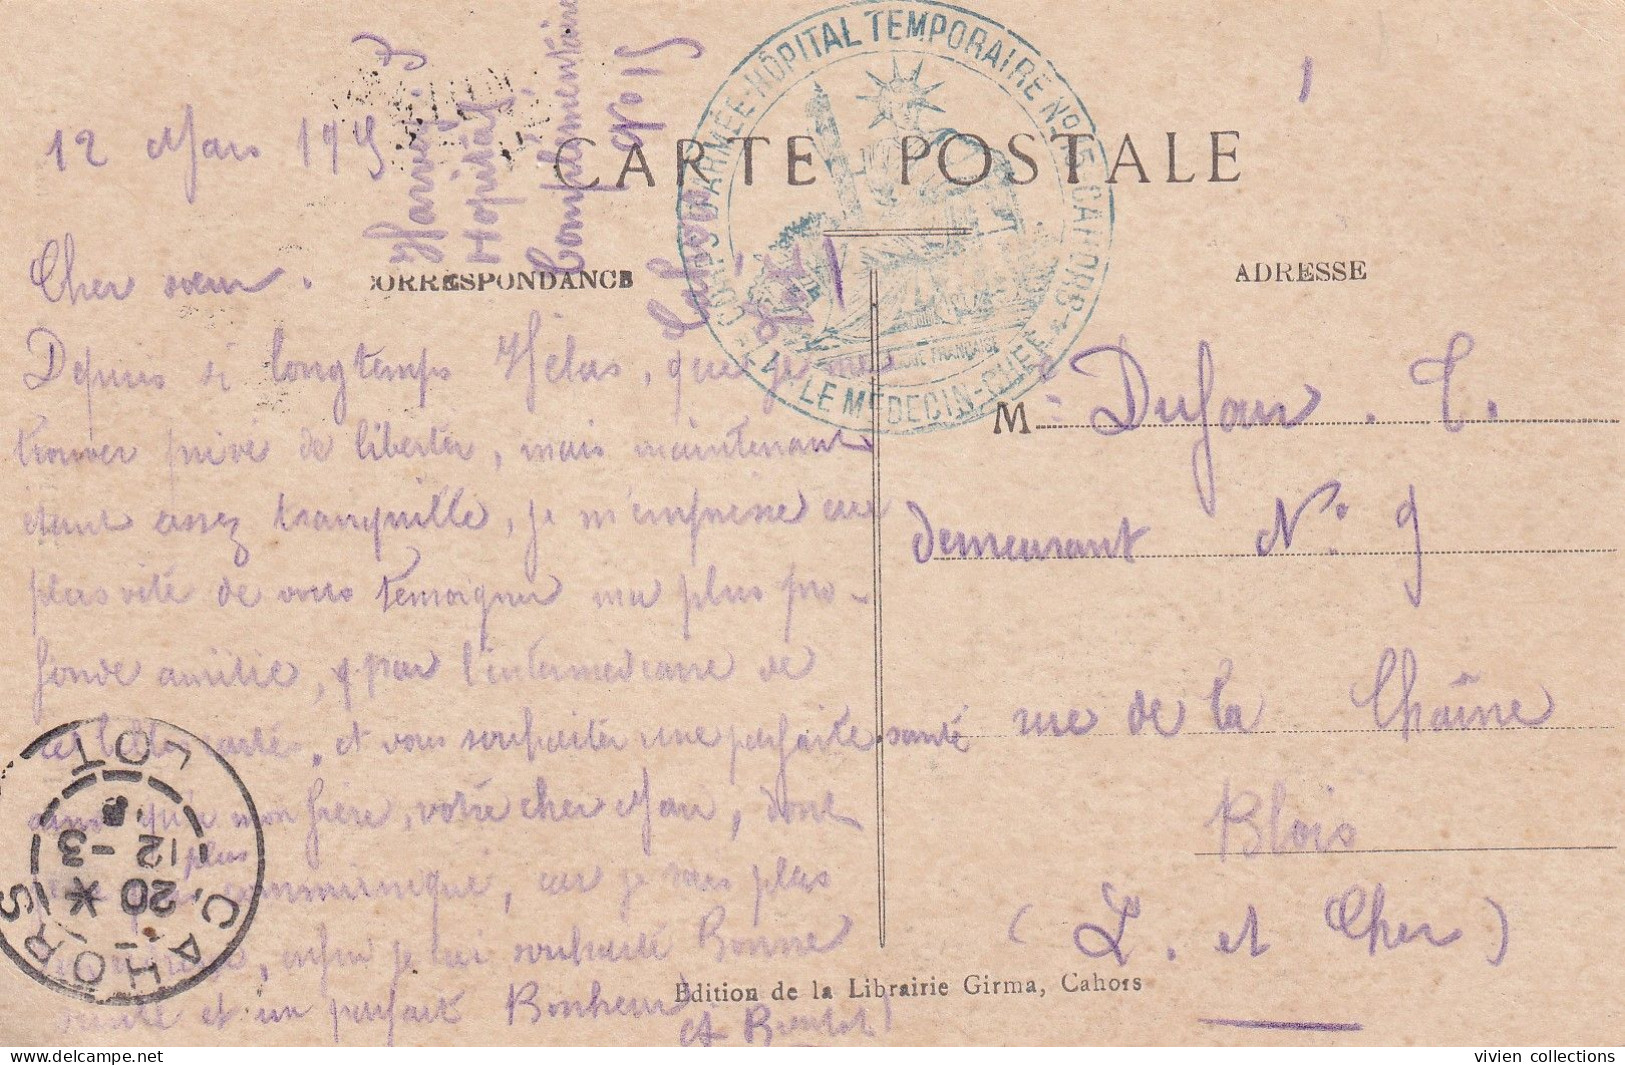 CORPS D'ARMÉE - HÔPITAL TEMPORAIRE Nº 15 - CAHORS -
LE MÉDECIN-CHEF
FRANÇAISE
CARTE POSTALE
CORRESPONDANCE
ADRESSE
Hopital
Complémentaire
Nº 15
Cahors
Lot
12 Mars 1915
Cher sœur.
Depuis si longtemps Hélas, que je me
trouver privé de liberter, mais maintenant
étant assez tranquille, je m'empresse au
plus vité de vous temoigner ma plus pro-
fonde amitie, par l'intermediaire de
cette carté, et vous souhaiter une parfaite santé
ainsi qu'a mon frère, votre cher Mari, dont
plus
communiqué, car je suis plus
enfin je lui souhaité Bonne
santé et un parfait Bonheur
et Bientot
M Dufour. C.
demeurant Nº 9
rue de la Chaîne
Blois
(L. et Cher)
CAHORS
LOT
20 *
12 - 3
Edition de la Librairie Girma, Cahors
vivien collections